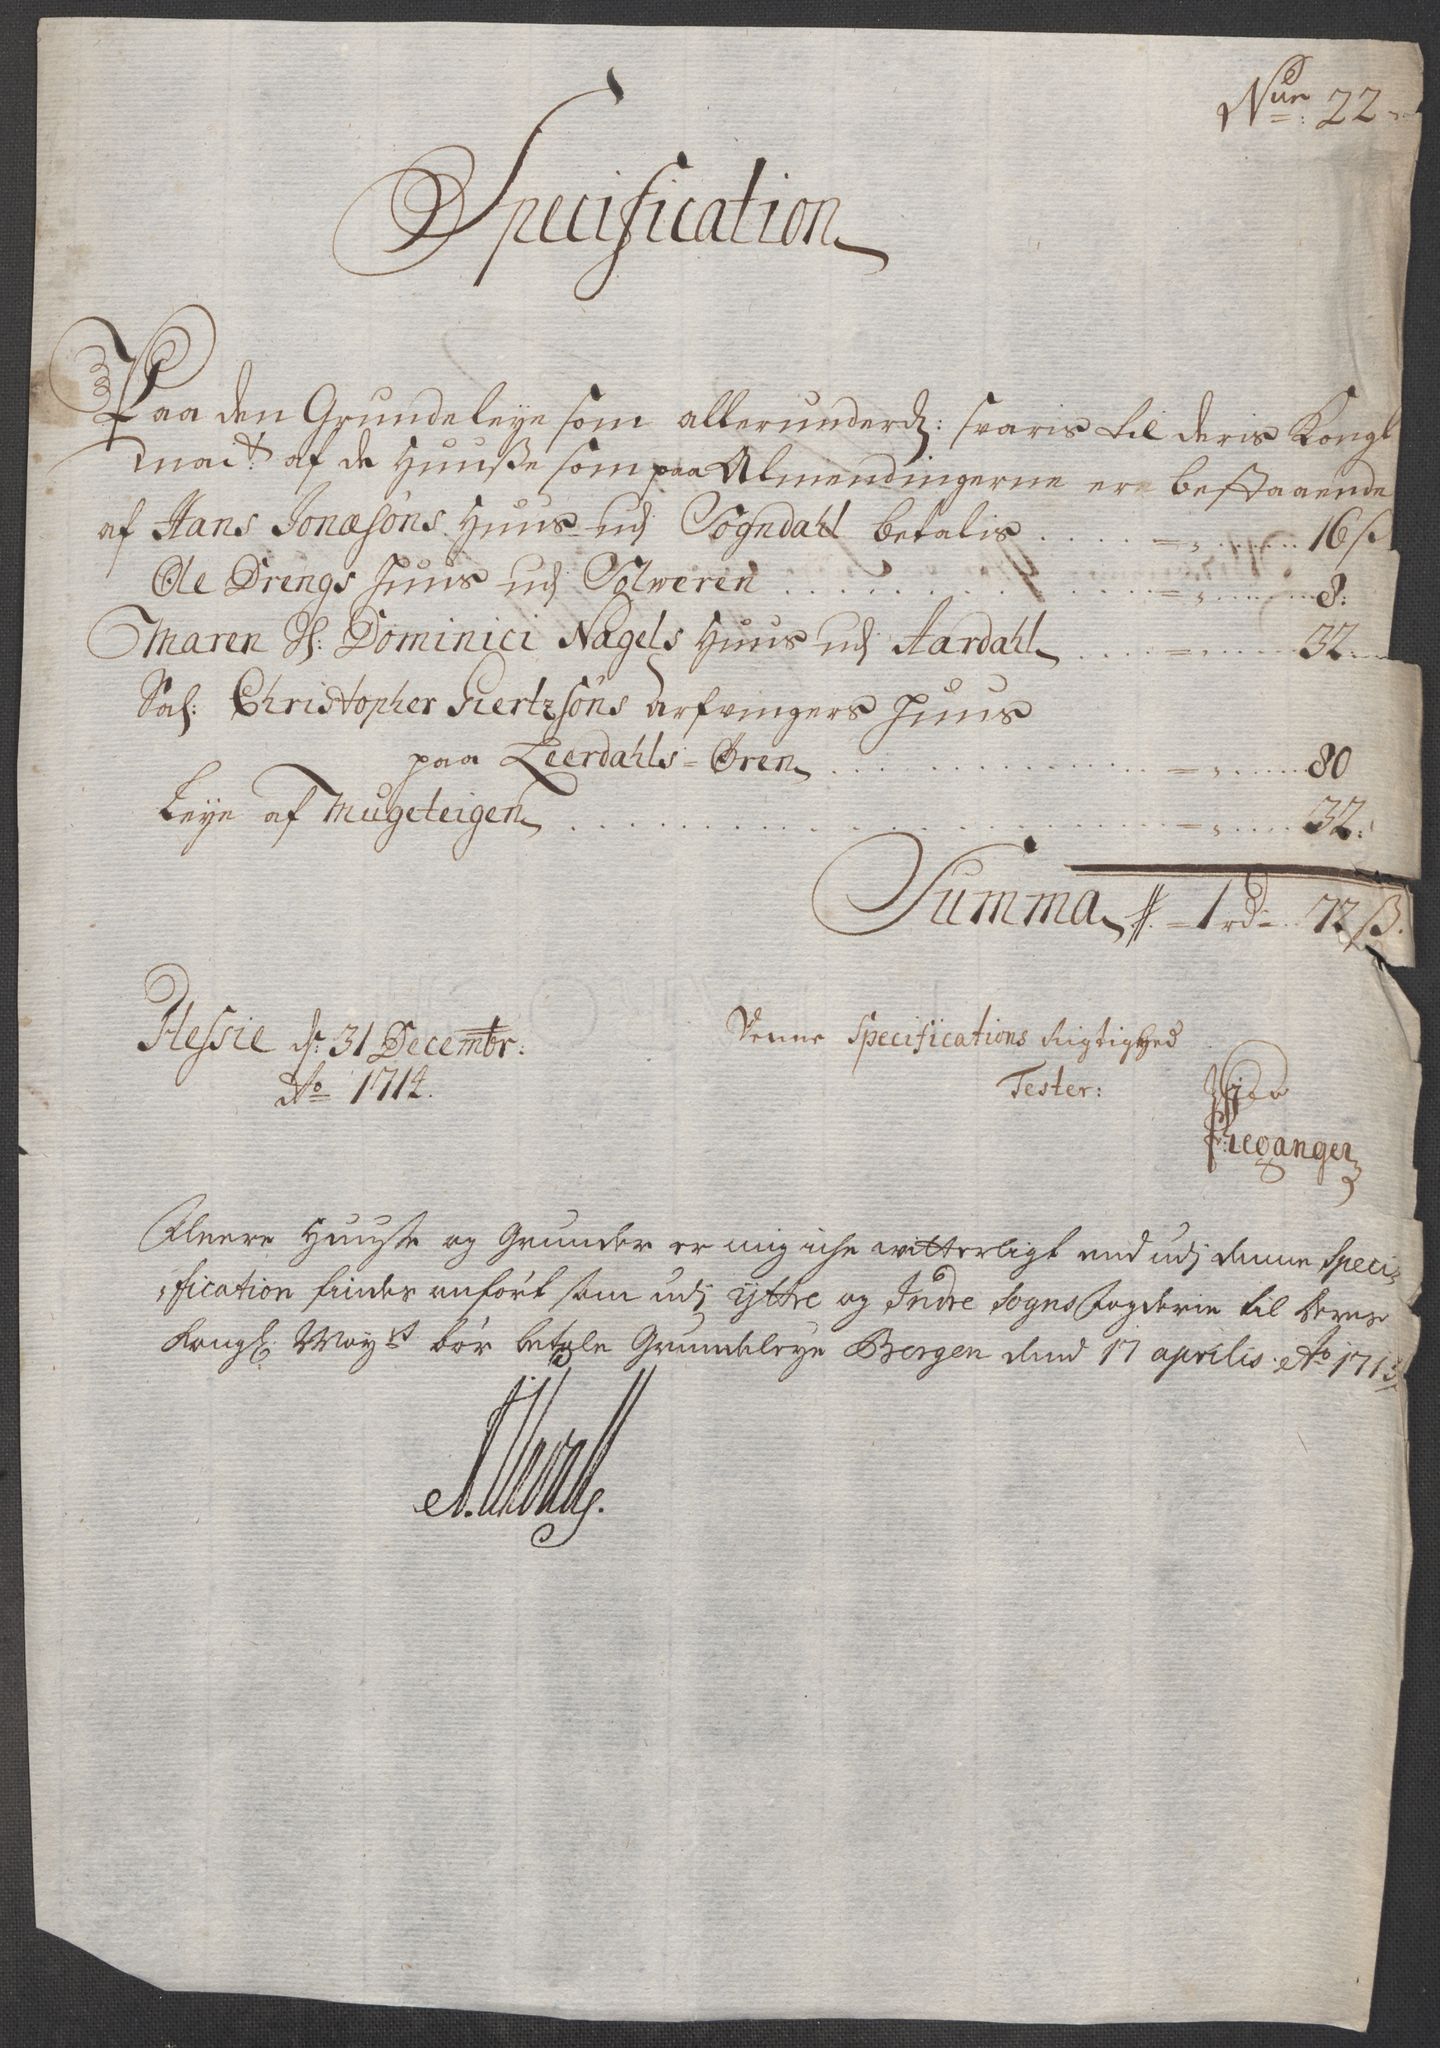 Num: 22
Specification
Paa den Grundeleye som allerunderd: svaris til deris Kongl
mait: af de Huuße som paa Almendingerne ere bestaaende
af Hans Jonæsöns Huus udj Sogndahl betalis 16 ß
Ole Drengs Huus udj Solweren 8:
Maren Sl: Dominici Nagels Huus udj Aardahl 32
Sal: Christopher Giertzöns Arfvingers Huus
paa Leerdahls-Ören 80
Leye af Mugeteigen 32:
Summa 1 rd 72 ß.
Flessie d: 31 Decembr:
Ao 1714.
Denne Specifications Rigtighed
Tester:
Fleere Huuse og Grunder er mig iche witterligt end udj denne Speci-
fication findes anfört som udj yttre og Indre Sogns fogderie til Deres
Kongl: Mayts bör betale Grundeleye Bergen dend 17 aprilis Ao 1715